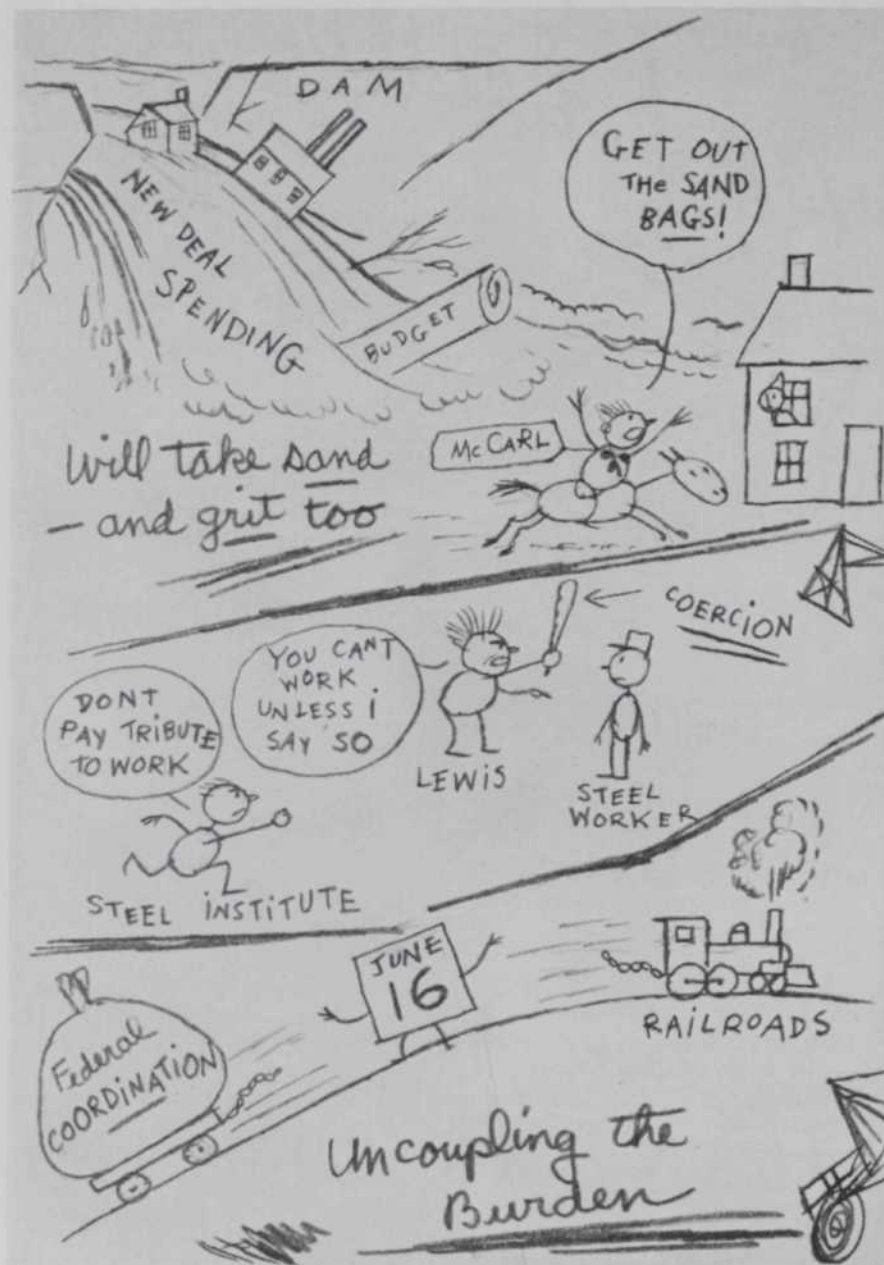 DAM
NEW DEAL
SPENDING
BUDGET
GET OUT
THE SAND
BAGS!
McCARL
Will take sand
— and grit too
COERCION
YOU CANT
WORK
UNLESS I
SAY SO
DONT
PAY TRIBUTE
TO WORK
LEWIS
STEEL
WORKER
STEEL INSTITUTE
JUNE
16
RAILROADS
Federal
COORDINATION
Uncoupling the
Burden